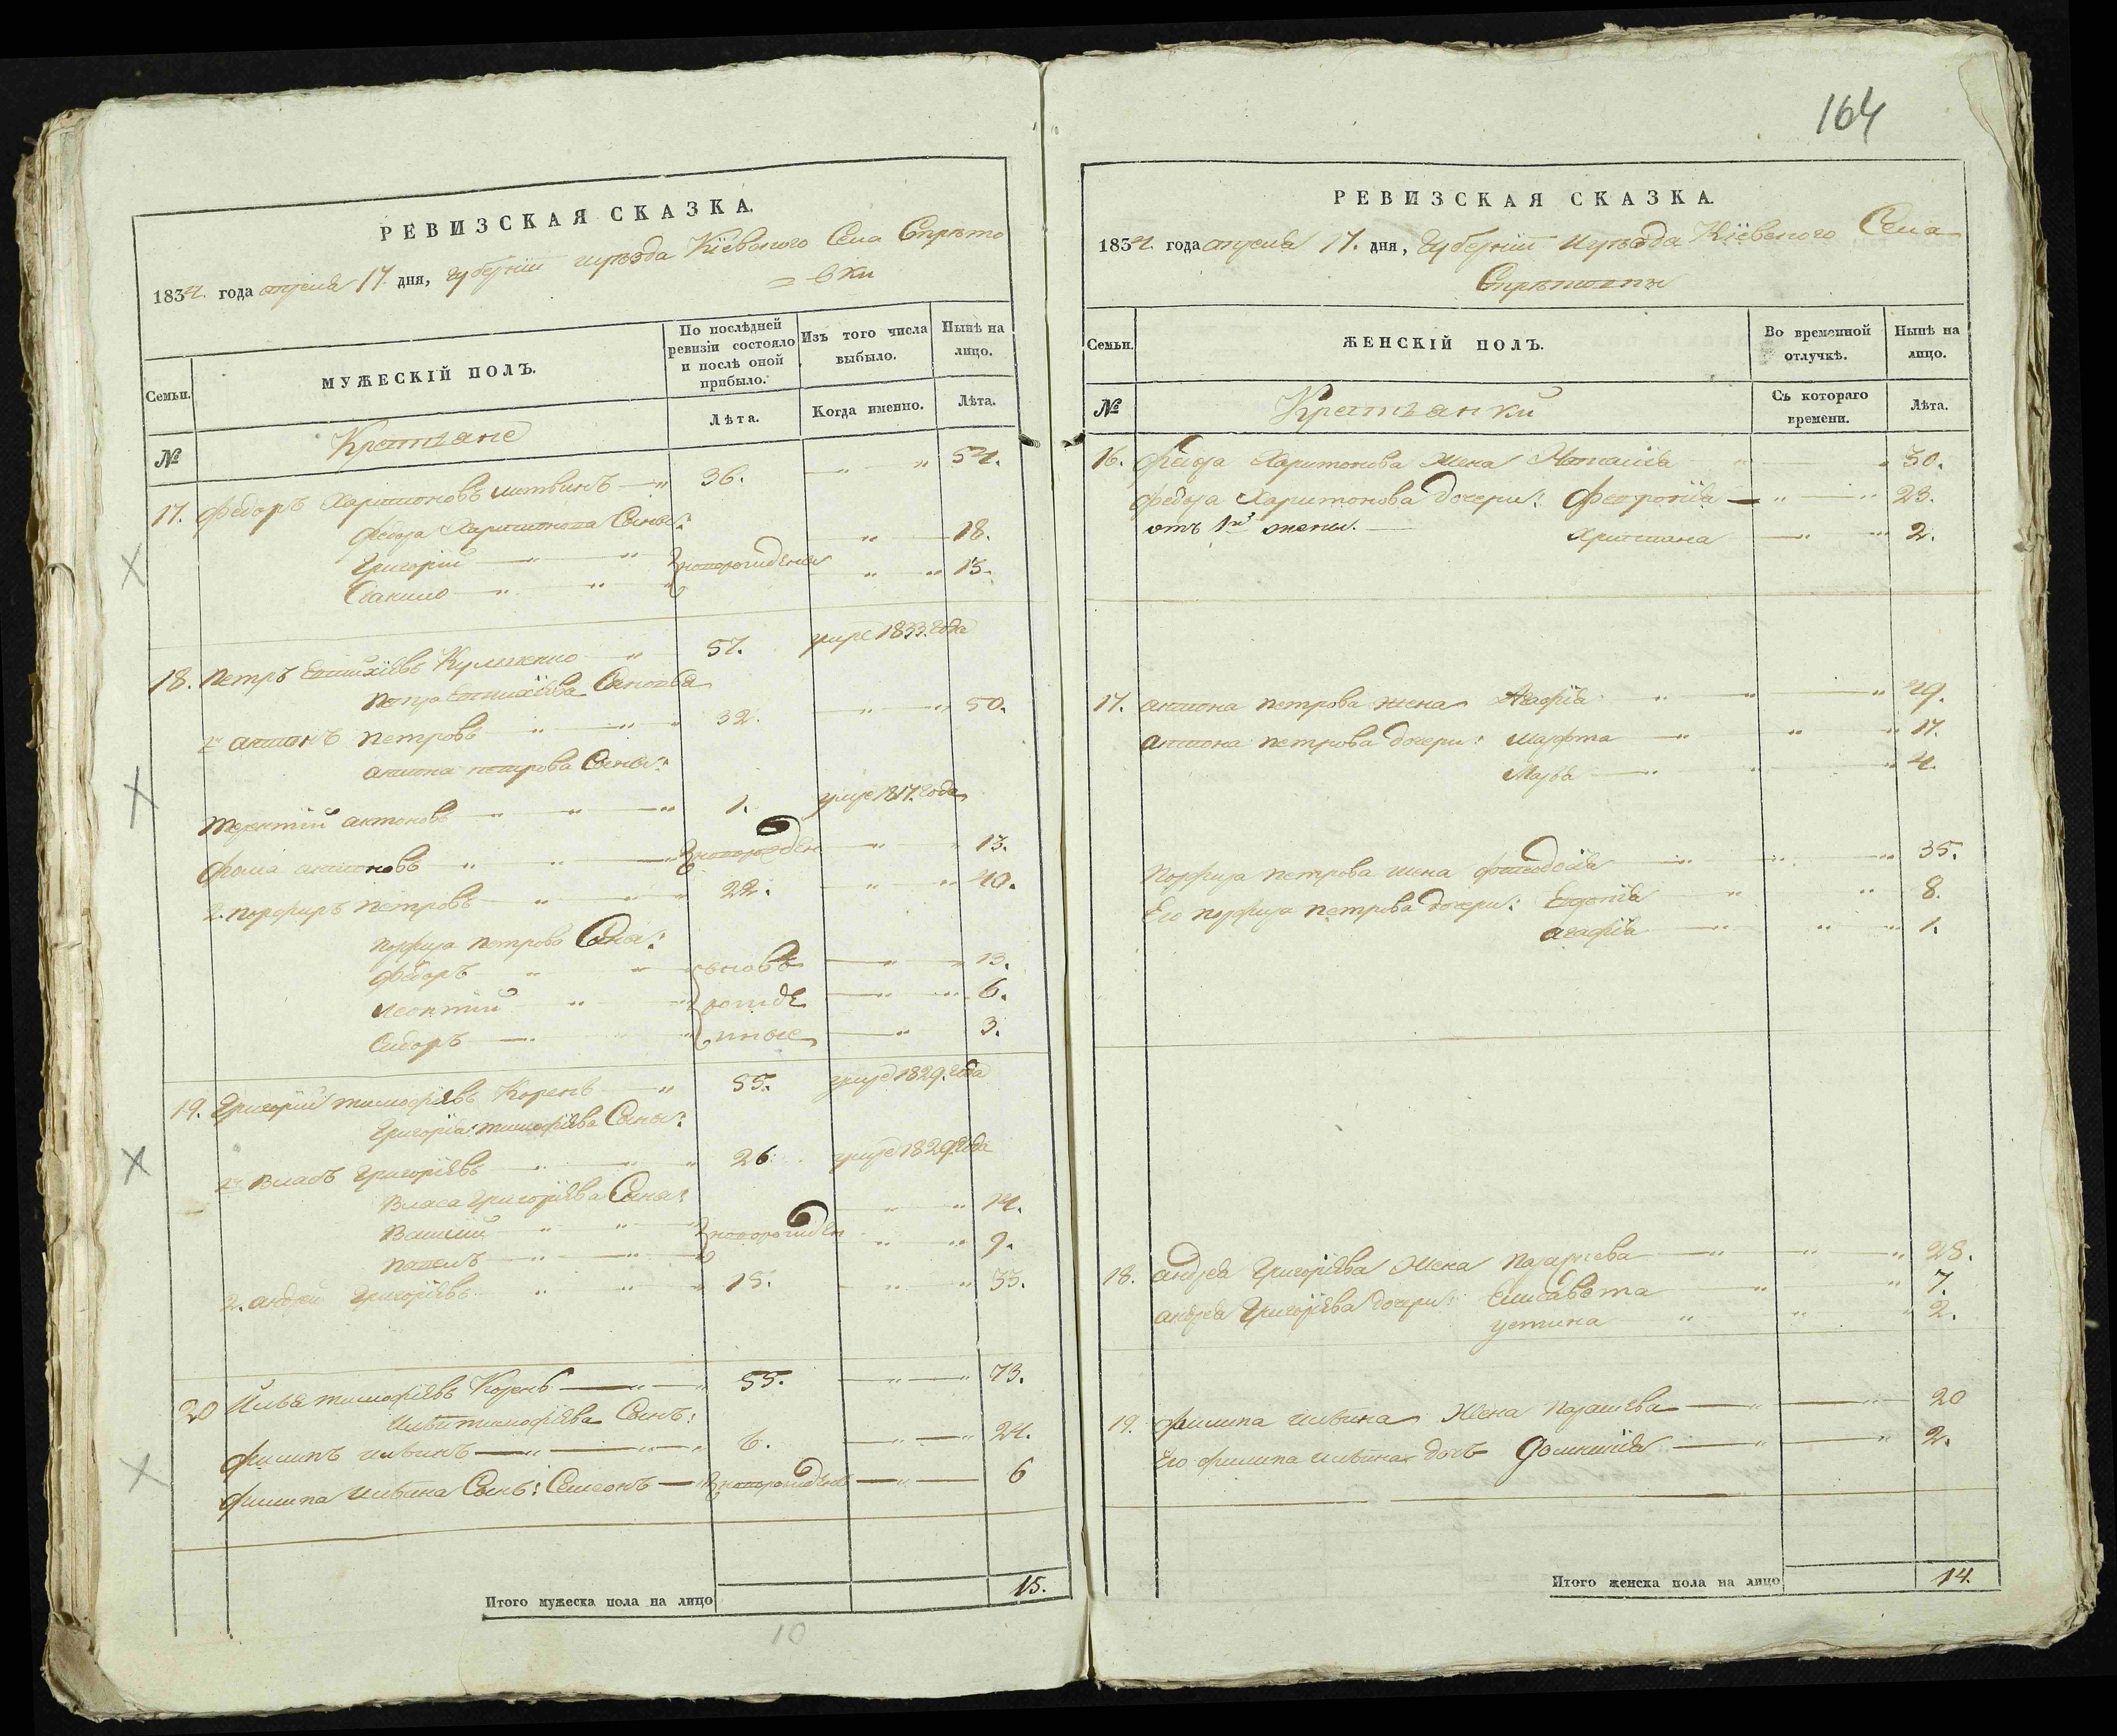 164
РЕВИЗСКАЯ СКАЗКА.
1834 года апреля 17. дня, Губернїи и уѣзда Кїевского Села Спрѣто
= вки
Семьи.
МУЖЕСКІЙ ПОЛЪ.
По послѣдней ревизіи состояло и послѣ оной прибыло.
Изъ того числа выбыло.
Нынѣ на лицо.
№
Крестяне
Лѣта.
Когда именно.
Лѣта.
17. Федоръ Харитоновъ Литвинъ — 36. — " " 54.
Федора Харитонова Сыны:
Григорій — " — " новорожденны — " — 18.
Данило — " " " — " " 13.
18. Петръ Кулиненко — " 57. умре 1833. года
Петра Сыновья
1й Антонъ Петровъ — " — " 32. — " — " 50.
Антона Петрова Сыны:
Терентій Антоновъ — " — " — " 1. умре 1817. года
Фома Антоновъ — " — " — " новорожден — " — " 13.
2. Порфиръ Петровъ — " — " — " 22. — " — " 40.
Порфира Петрова Сыны:
Федоръ " " вновь — " — " 13.
Леонтій " " рожде — " — " 6.
Сидоръ — " " нные — " 3.
19. Григорій Тимофѣевъ Корень — " 55. умре 1829. года
Григорія Тимофѣева Сыны:
1й Власъ Григорїевъ — " — " 26. умре 1829 года
Власа Григорїева Сыны:
Василій — " — " новорожден — " — " 14.
Павелъ — " — " — " — " 9.
2. Андрей Григорїевъ " " — " 15. — " — " 33.
20 Илья Тимофѣевъ Корень — " — " 55. — " — " 73.
Ильи Тимофѣева Сынъ:
Филипъ Ильинъ — " — " — " 6. — " — " 24.
Филипа Ильина Сынъ: Семеонъ — " новорожденъ — " — 6
Итого мужеска пола на лицо 15.
10
РЕВИЗСКАЯ СКАЗКА.
1834 года апреля 17. дня, Губернїи и уѣзда Кїевского Села
Спрѣтовки
Семьи.
ЖЕНСКІЙ ПОЛЪ.
Во временной отлучкѣ.
Нынѣ на лицо.
№
Крестянки
Съ котораго времени.
Лѣта.
16. Федора Харитонова жена Наталїя " — " 30.
Федора Харитонова дочери: Февронїя — " — " 23.
отъ 1й жены. — Христина — " — " 2.
17. Антона Петрова жена Агафїя " — " — " 49.
Антона Петрова дочери: Марфта — " " " 17.
Марья — " " " 4.
Порфира Петрова жена — " — " — " 35.
Его Порфира Петрова дочери: " " 8.
Агафїя — " " " 1.
18. Андрея Григорїева жена — " — " — " 28.
Андрея Григорїева дочери: Елисавета — " " 7.
Устина " " " 2.
19. Филипа Ильина жена — " — " 20
Его Филипа Ильина дочь Домникїя — " — " 2.
Итого женска пола на лицо 14.